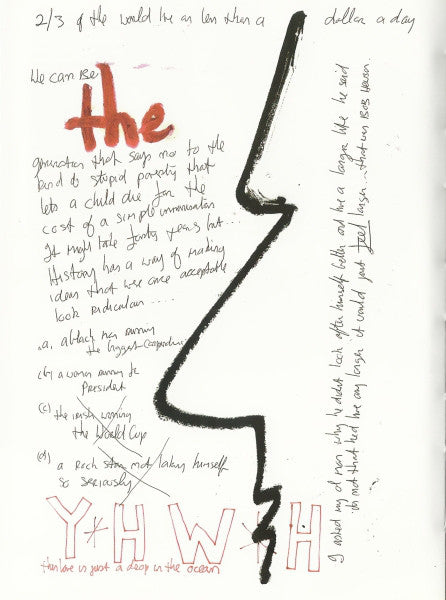 2/3 of the world live on less than a dollar a day
We can be
the
generation that says no to the
kind of stupid poverty that
lets a child die for the
cost of a simple immunisation
It might take forty years but...
History has a way of making
ideas that were once acceptable
look ridiculous....
a. a black man running
the biggest
(b) a woman running for
President
(c) the irish winning
the World Cup
(d) a Rock star not taking himself
so seriously
Y*HW*H
this love is just a drop in the ocean
I asked my old man why he didnt look after himself better and live a longer life he said
its not that Id live any longer it would just feel longer... that was BOB HEWSON